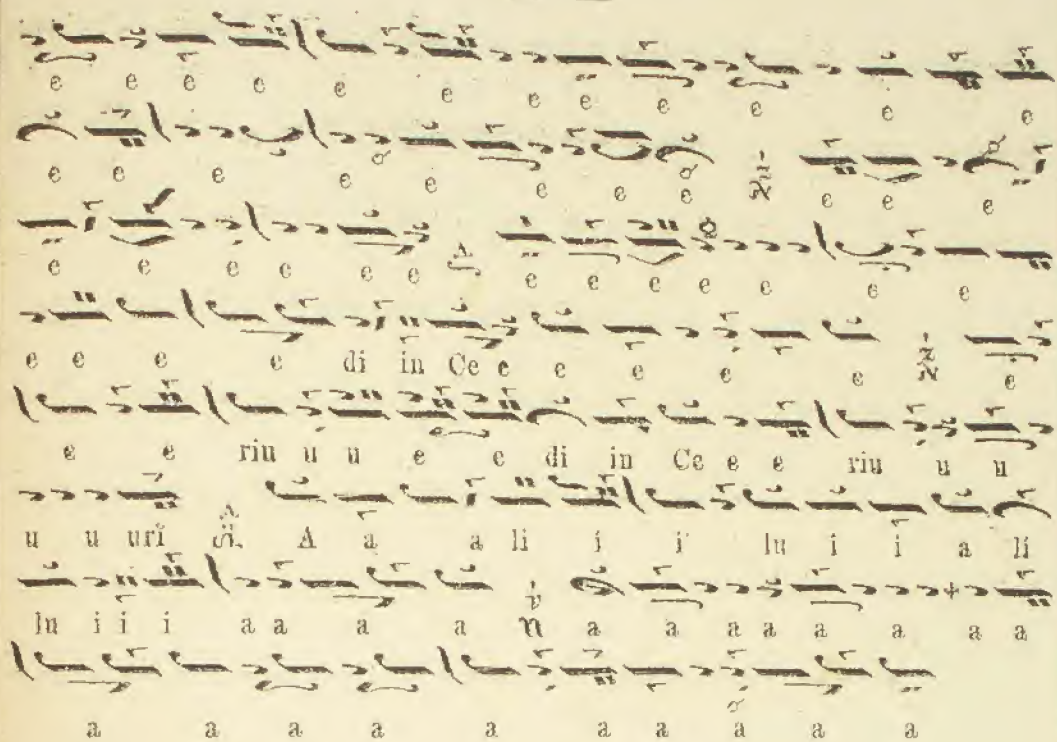 e e e e e e e e e e e e
e e e e e e e e e e e
e e e e e e e e e e e e e
e e e e di in Ce e e e e e e
e e riu u u e e di in Ce e e riu u u
u u uri A a a li i i lu i i a li
lu i i i a a a a a a a a a a a a
a a a a a a a a a a